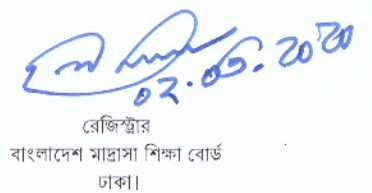 ০২.০৬.২০২০
রেজিস্ট্রার
বাংলাদেশ মাদ্রাসা শিক্ষা বোর্ড
ঢাকা।